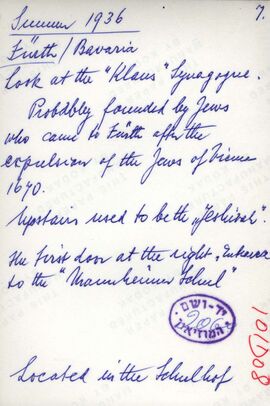 Summer 1936
7.
Fürth/Bavaria
Look at the "Klaus" Synagogue.
Probably founded by Jews
who came to Fürth after the
expulsion of the Jews of Vienne
1670.
Upstairs used to be the "Jeshivah".
The first door at the right, Entrance
to the "Mannheimer Schul"
יד-ושם
המוזיאון
Located in the Schulhof